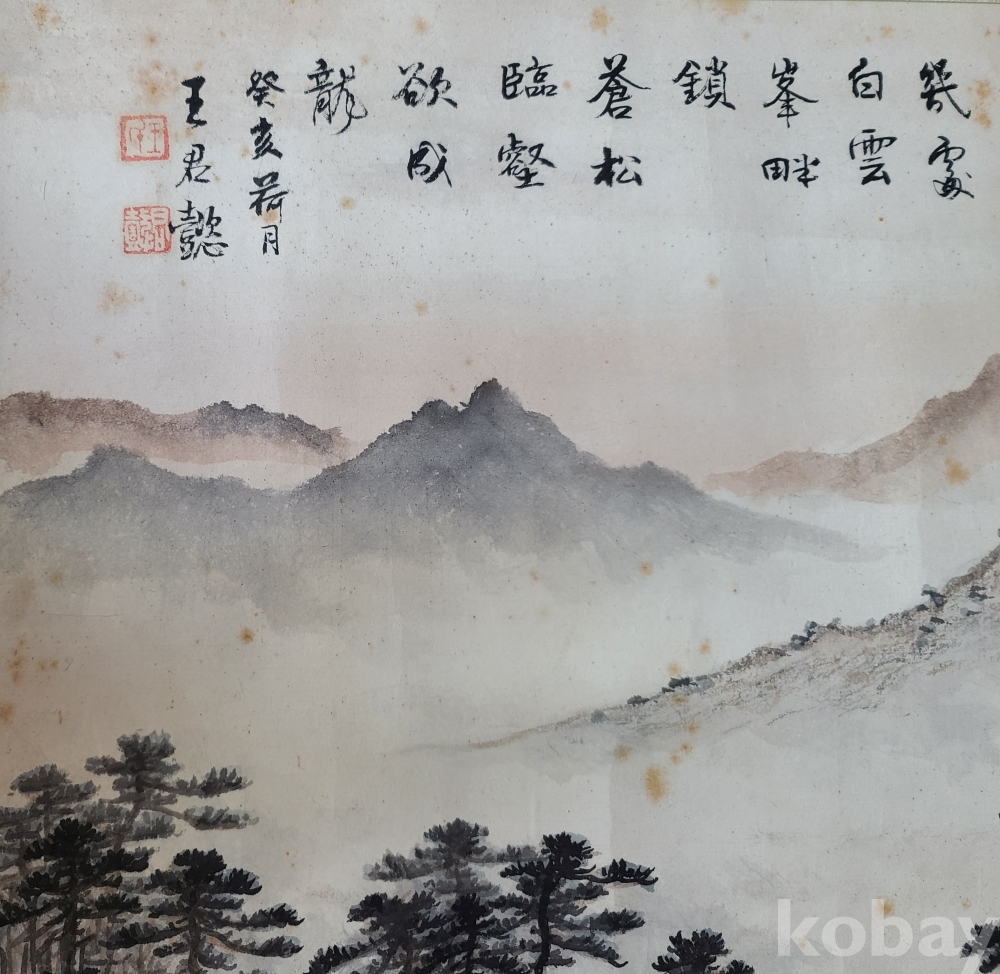 幾處
白雲
峯畔
鎖
蒼松
臨壑
欲成
龍
癸亥荷月
王君懿
kobay